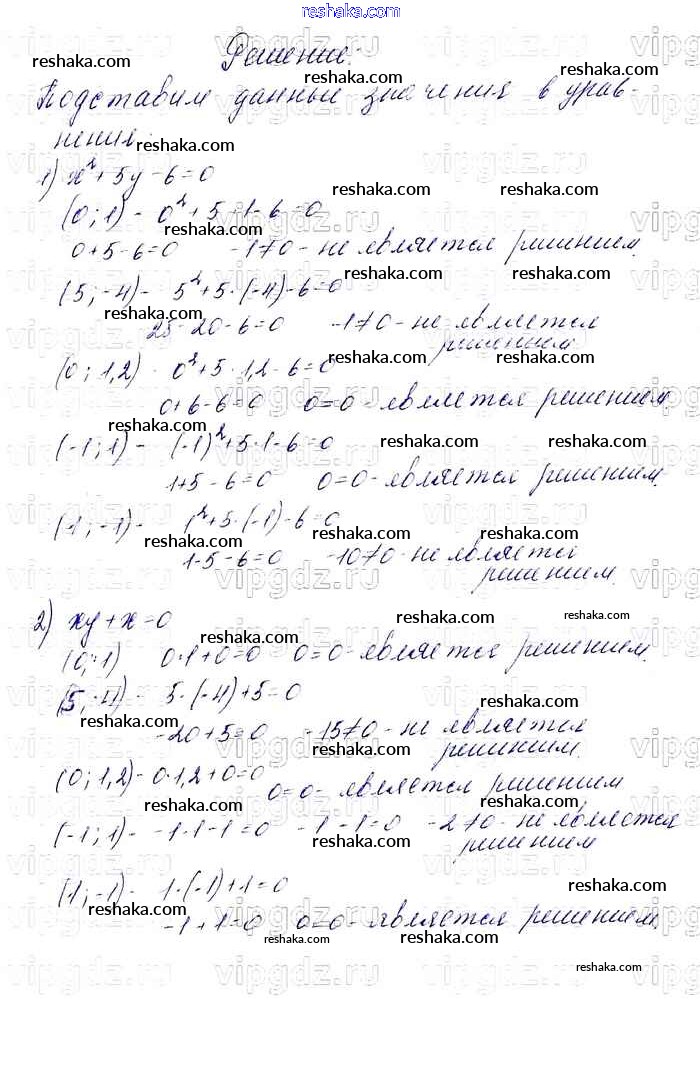 reshaka.com
Решение:
Подставим данные значения в урав-
нения.
1) x²+5y-6=0
(0;1) - 0²+5·1-6=0
0+5-6=0 -1≠0 - не является решением.
(5;-4) - 5²+5·(-4)-6=0
25-20-6=0 -1≠0 - не является
решением.
(0; 1,2) - 0²+5·1,2-6=0
0+6-6=0 0=0 - является решением.
(-1;1) - (-1)²+5·1-6=0
1+5-6=0 0=0 - является решением.
(1;-1) - 1²+5·(-1)-6=0
1-5-6=0 -10≠0 - не является
решением.
2) xy+x=0
(0;1) 0·1+0=0 0=0 - является решением.
(5;-4) - 5·(-4)+5=0
-20+5=0 -15≠0 - не является
решением.
(0; 1,2) - 0·1,2+0=0
0=0 - является решением
(-1;1) - -1·1-1=0 -1-1=0 -2≠0 - не является
решением
(1;-1) - 1·(-1)+1=0
-1+1=0 0=0 - является решением.